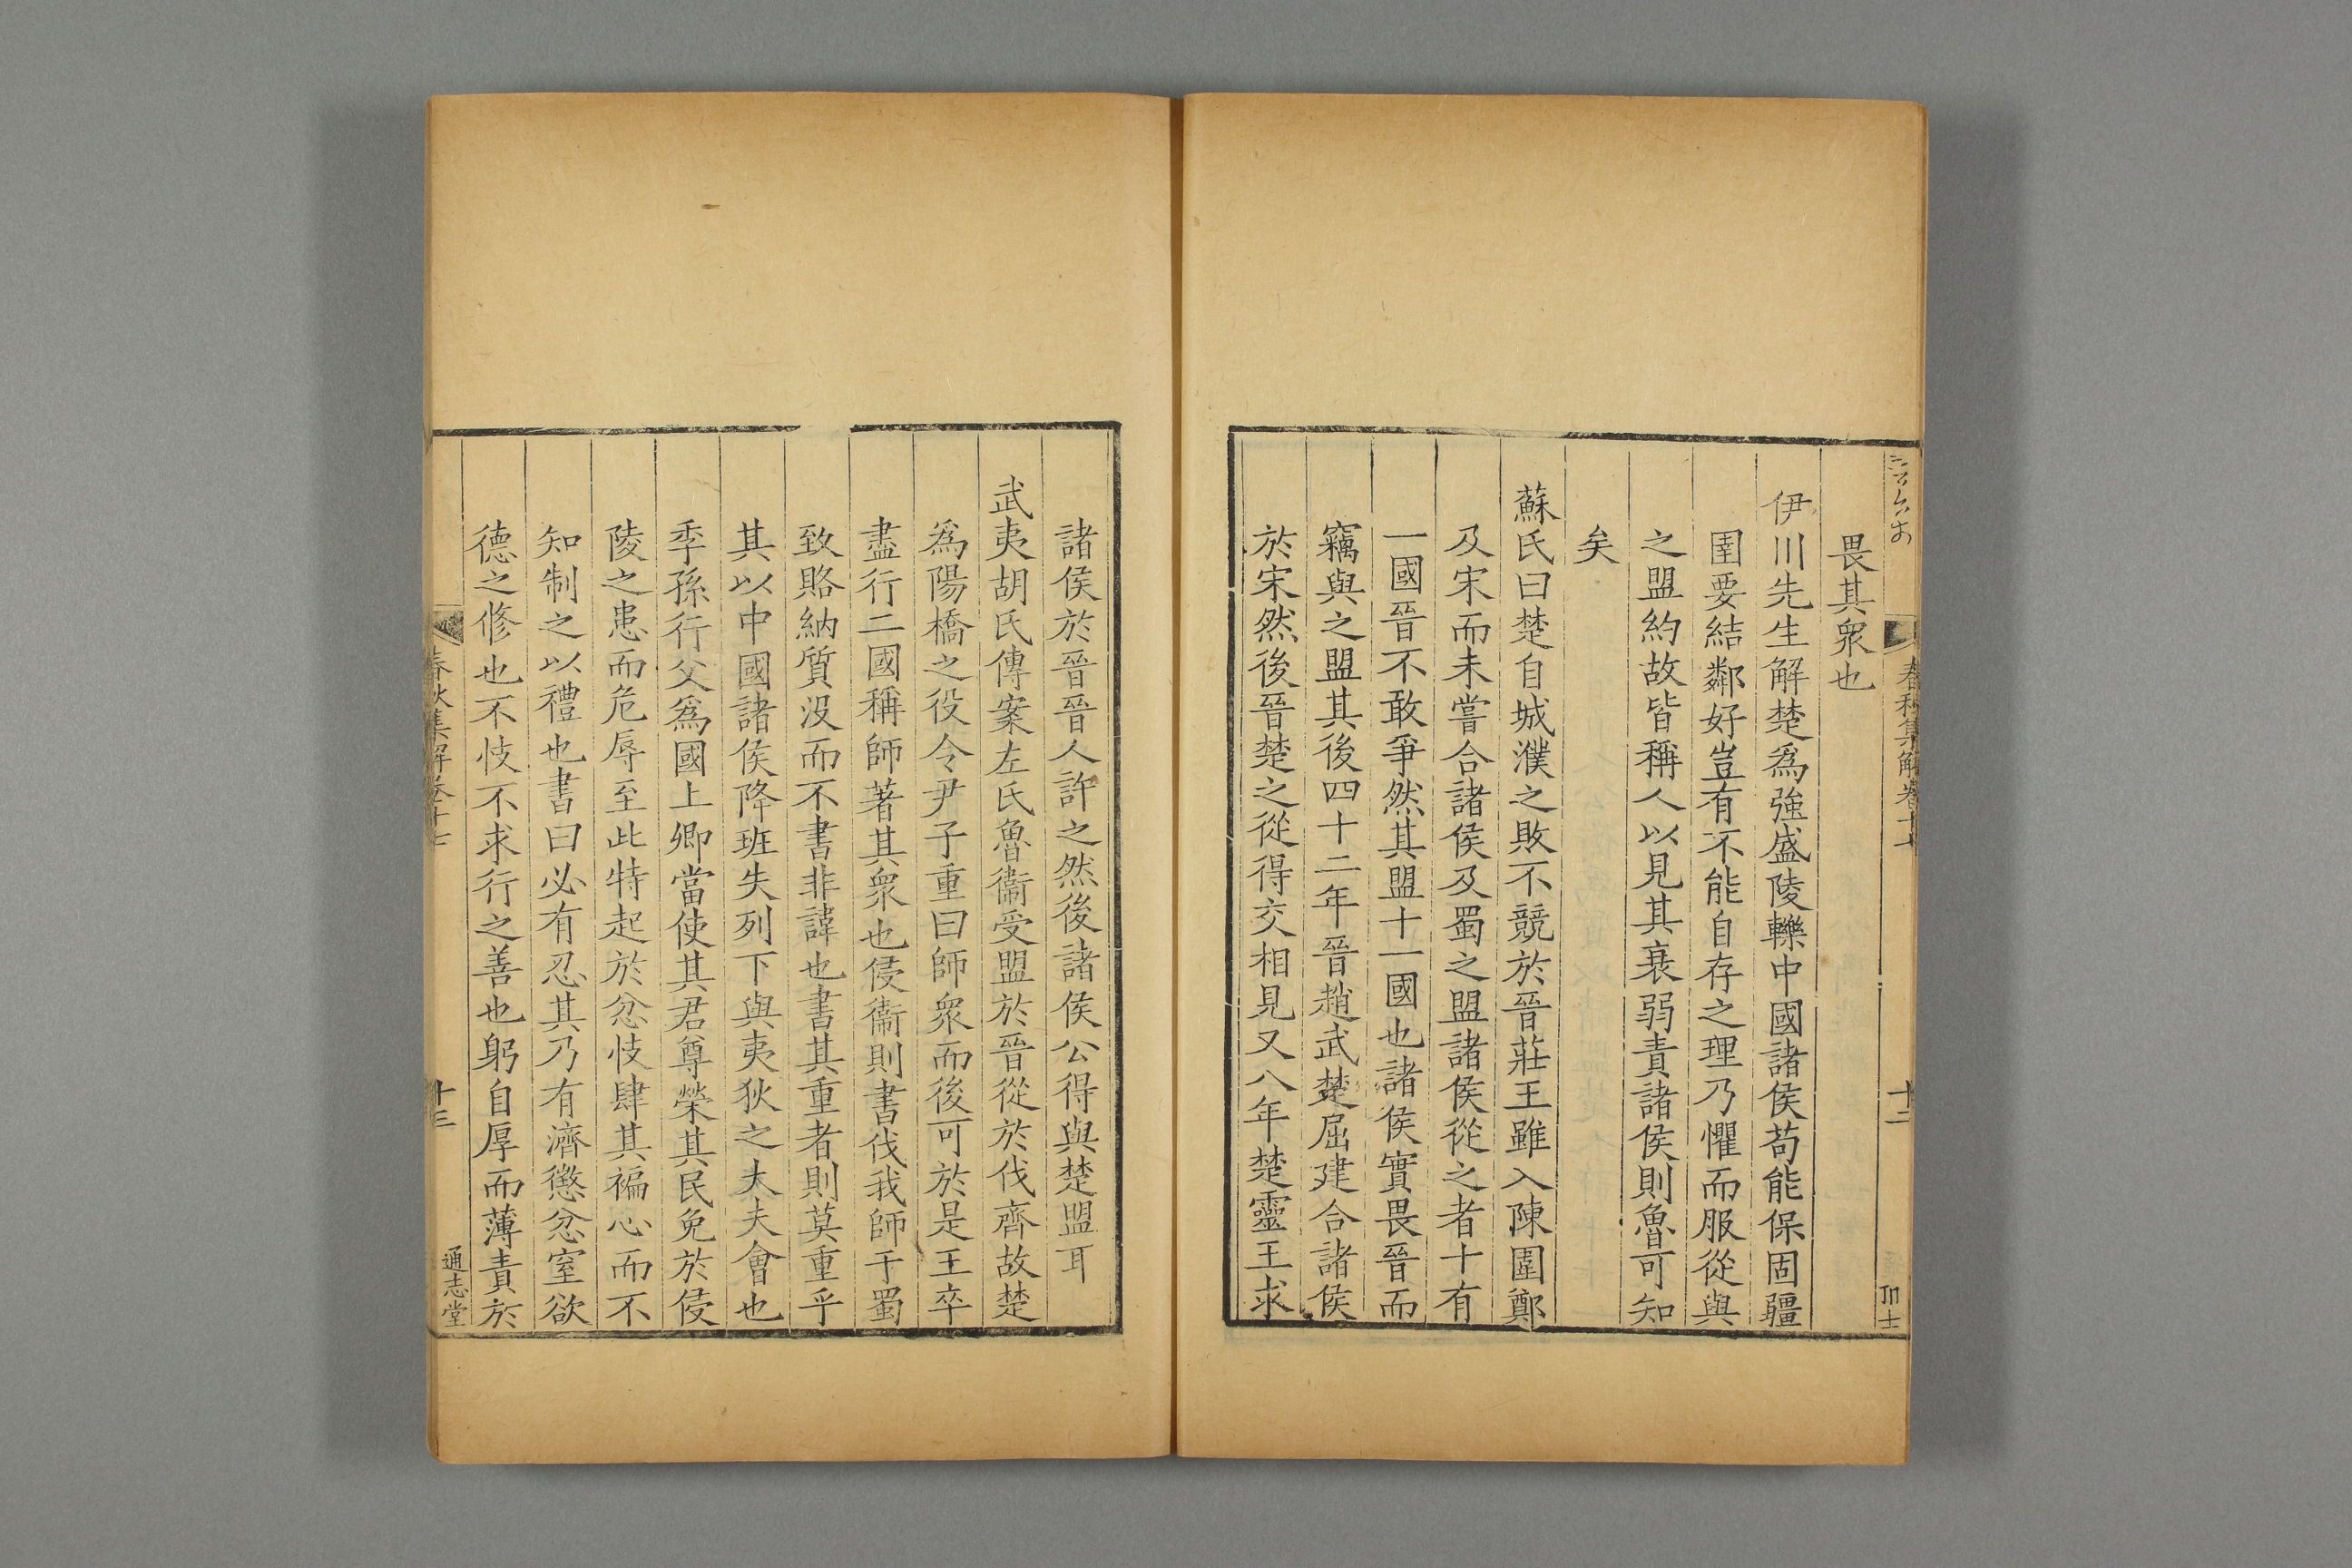 畏其衆也
伊川先生解楚爲強盛陵轢中國諸侯苟能保固疆
圉要結鄰好豈有不能自存之理乃懼而服從與
之盟約故皆稱人以見其衰弱責諸侯則魯可知
矣
蘇氏曰楚自城濮之敗不競於晉莊王雖入陳圍鄭
及宋而未嘗合諸侯及蜀之盟諸侯從之者十有
一國晉不敢爭然其盟十一國也諸侯實畏晉而
竊與之盟其後四十二年晉趙武楚屈建合諸侯
於宋然後晉楚之從得交相見又八年楚靈王求
諸侯於晉晉人許之然後諸侯公得與楚盟耳
武夷胡氏傳案左氏魯衞受盟於晉從於伐齊故楚
爲陽橋之役令尹子重曰師衆而後可於是王卒
盡行二國稱師著其衆也侵衞則書伐我師于蜀
致賂納質沒而不書非諱也書其重者則莫重乎
其以中國諸侯降班失列下與夷狄之大夫會也
季孫行父爲國上卿當使其君尊榮其民免於侵
陵之患而危辱至此特起於忿忮肆其褊心而不
知制之以禮也書曰必有忍其乃有濟懲忿窒欲
德之修也不忮不求行之善也躬自厚而薄責於
春秋集解卷十七
十三
通志堂